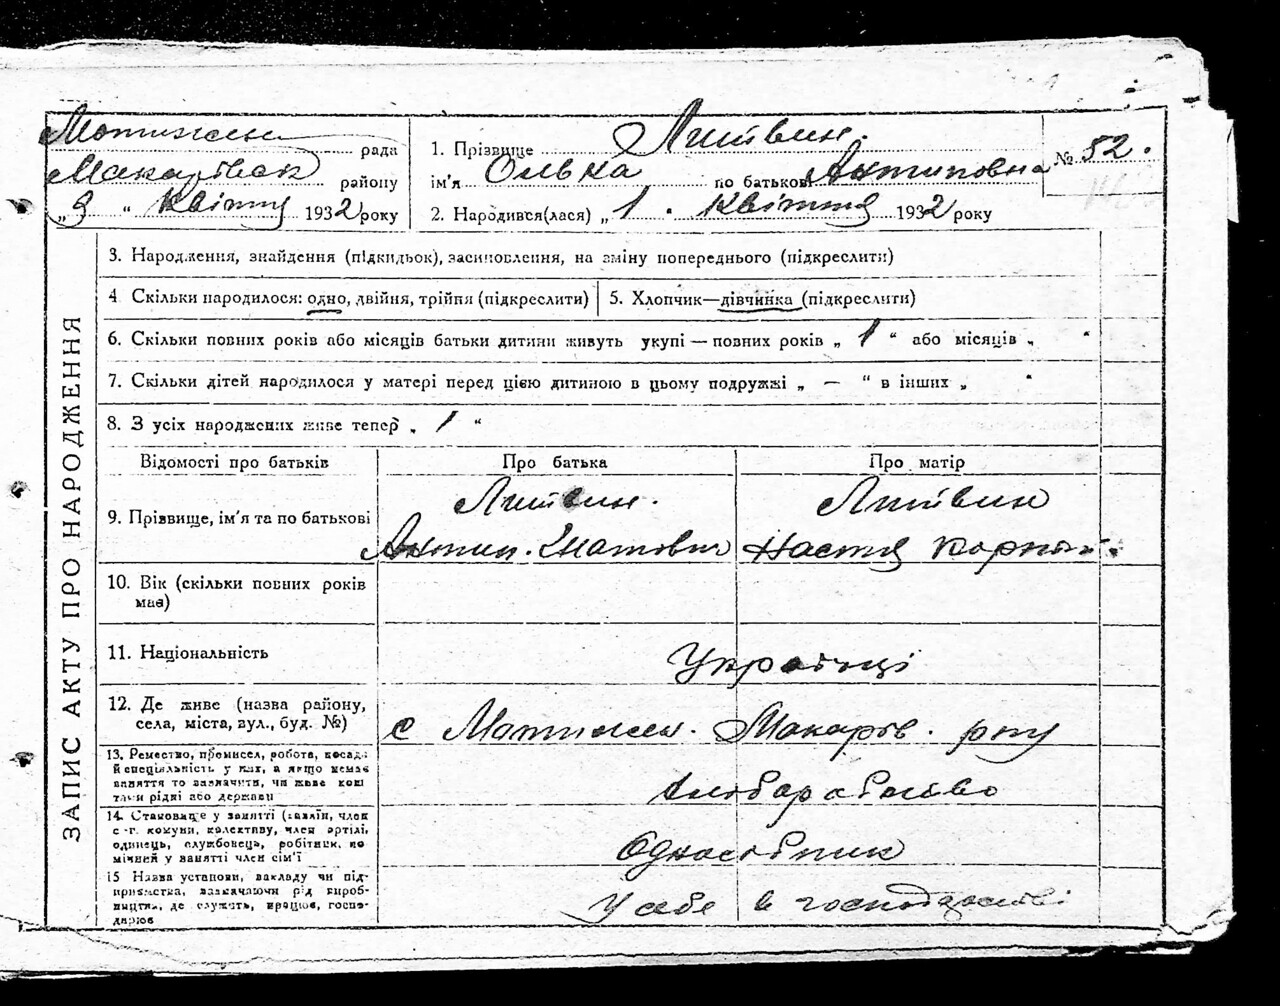 Мотижин рада
Макарівськ району
„3“ Квітня 1932 року
1. Прізвище Литвин.
ім'я Олька по батькові Антиповна
№ 52.
2. Народився(лася) „1. Квітня 1932 року
ЗАПИС АКТУ ПРО НАРОДЖЕННЯ
3. Народження, знайдення (підкидьок), засиновлення, на зміну попереднього (підкреслити)
4 Скільки народилося: одно, двійня, трійня (підкреслити)
5. Хлопчик—дівчинка (підкреслити)
6. Скільки повних років або місяців батьки дитини живуть укупі — повних років „ 1 “ або місяців „ “
7. Скільки дітей народилося у матері перед цією дитиною в цьому подружжі „ — “ в інших „ “
8. З усіх народжених живе тепер „ 1 “
Відомості про батьків Про батька Про матір
9. Прізвище, ім'я та по батькові
Литвин. Литвин
Антип. Настя Корн
10. Вік (скільки повних років
має)
11. Національність Українці
12. Де живе (назва району,
села, міста, вул., буд. №)
с Мотижин. Макарів. р-ну
13. Ремество, промисел, робота, посада
й спеціяльність у них, а якщо немає
заняття то зазначити, чи живе кош
тами рідні або держави
Хліборобство
14. Становище у занятті (хазяїн, член
с.-г. комуни, колективу, член артілі,
одинець, службовець, робітник, по
мічний у занятті член сім'ї
Односібник
15 Назва установи, закладу чи під-
приємства, зазначаючи рід вироб-
ництва, де служить, працює, госпо-
дарює
У себе в господарстві